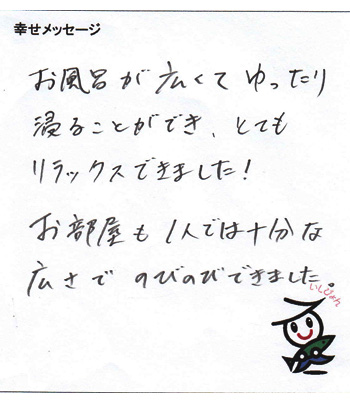 幸せメッセージ
お風呂が広くてゆったり
浸ることができ、とても
リラックスできました!
お部屋も1人では十分な
広さでのびのびできました。